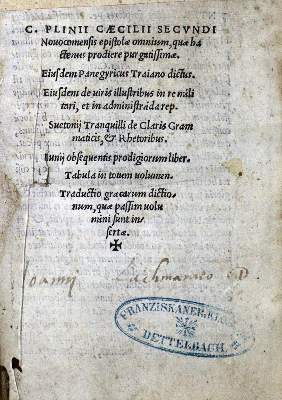 C. PLINII CÆCILII SECVNDI
Nouocomensis epistolæ omnium, quæ ha
ctenus prodiere purgatissimæ.
Eiusdem Panegyricus Traiano dictus.
Eiusdem de viris illustribus in re mili
tari, et in administrāda rep.
Suetonij Tranquilli de Claris Gram
maticis, & Rhetoribus.
Iunij obsequentis prodigiorum liber.
Tabula in totum uolumen.
Traductio græcarum dictio
num, quæ passim uolu
mini sunt in
sertæ.
FRANZISKANER
DETTELBACH